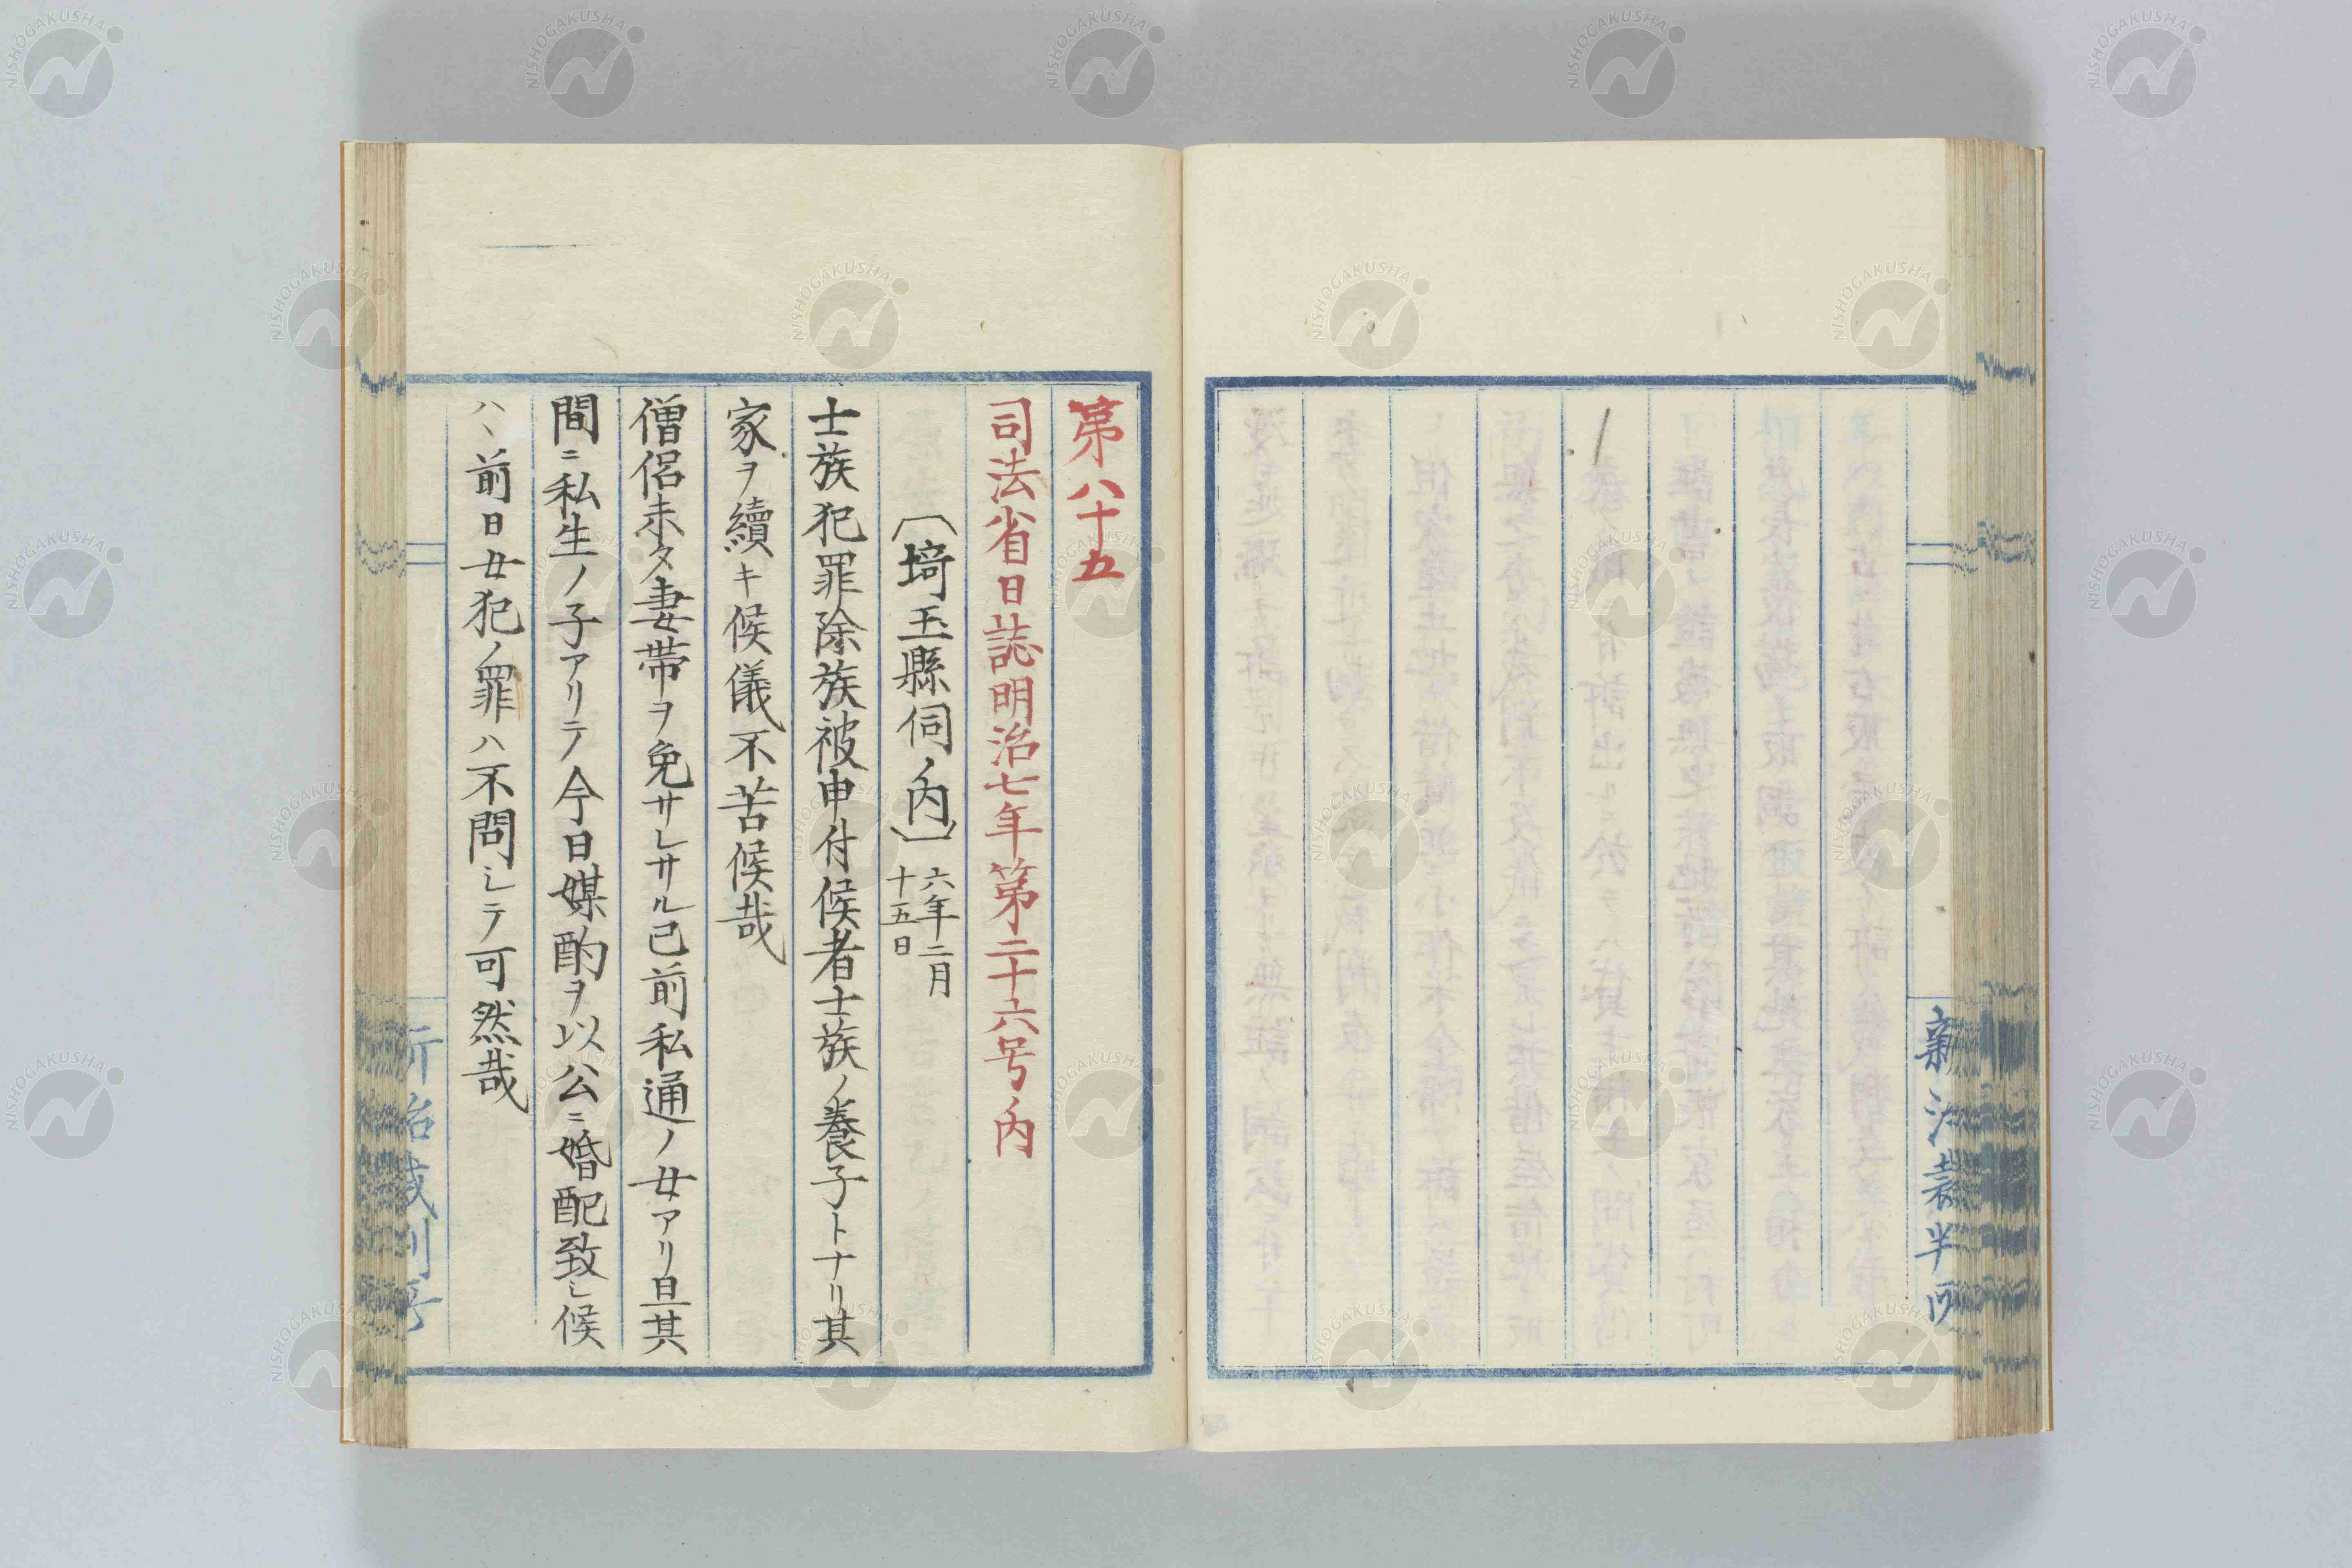 第八十五
司法省日誌明治七年第二十六号ノ内
〔埼玉縣伺ノ内〕六年二月
十五日
士族犯罪除族被申付候者士族ノ養子トナリ其
家ヲ續キ候儀不苦候哉
僧侶未タ妻帯ヲ免サレサル已前私通ノ女アリ且其
間ニ私生ノ子アリテ今日媒酌ヲ以公ニ婚配致シ候
ハヽ前日女犯ノ罪ハ不問シテ可然哉
NISHOGAKUSHA